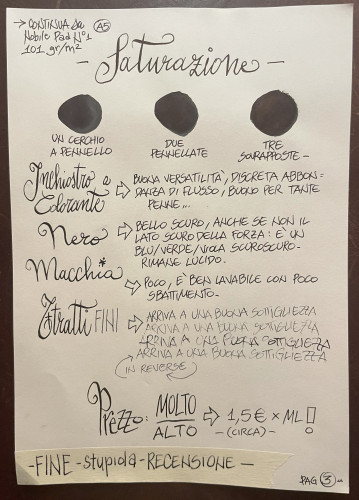 → CONTINUA da A5
Nobile Pad N°1
101 gr/m²
- Saturazione -
UN CERCHIO
A PENNELLO
DUE
PENNELLATE
TRE
SOVRAPPOSTE -
Inchiostro a
Colorante
⇨ BUONA VERSATILITÀ, DISCRETA ABBON=
DANZA DI FLUSSO, BUONO PER TANTE
PENNE...
Nero
⇨ BELLO SCURO, ANCHE SE NON IL
LATO SCURO DELLA FORZA: È UN
BLU/VERDE/VIOLA SCUROSCURO-
RIMANE LUCIDO.
Macchia
⇨ POCO, E' BEN LAVABILE CON POCO
SBATTIMENTO-
Tratti FINI
⇨ ARRIVA A UNA BUONA SOTTIGLIEZZA
ARRIVA A UNA BUONA SOTTIGLIEZZA
ARRIVA A UNA BUONA SOTTIGLIEZZA
ARRIVA A UNA BUONA SOTTIGLIEZZA
IN REVERSE
Prezzo: MOLTO
ALTO
⇨ 1,5 € × ML !
-(CIRCA)-
-FINE-stupida-RECENSIONE-
PAG 3-